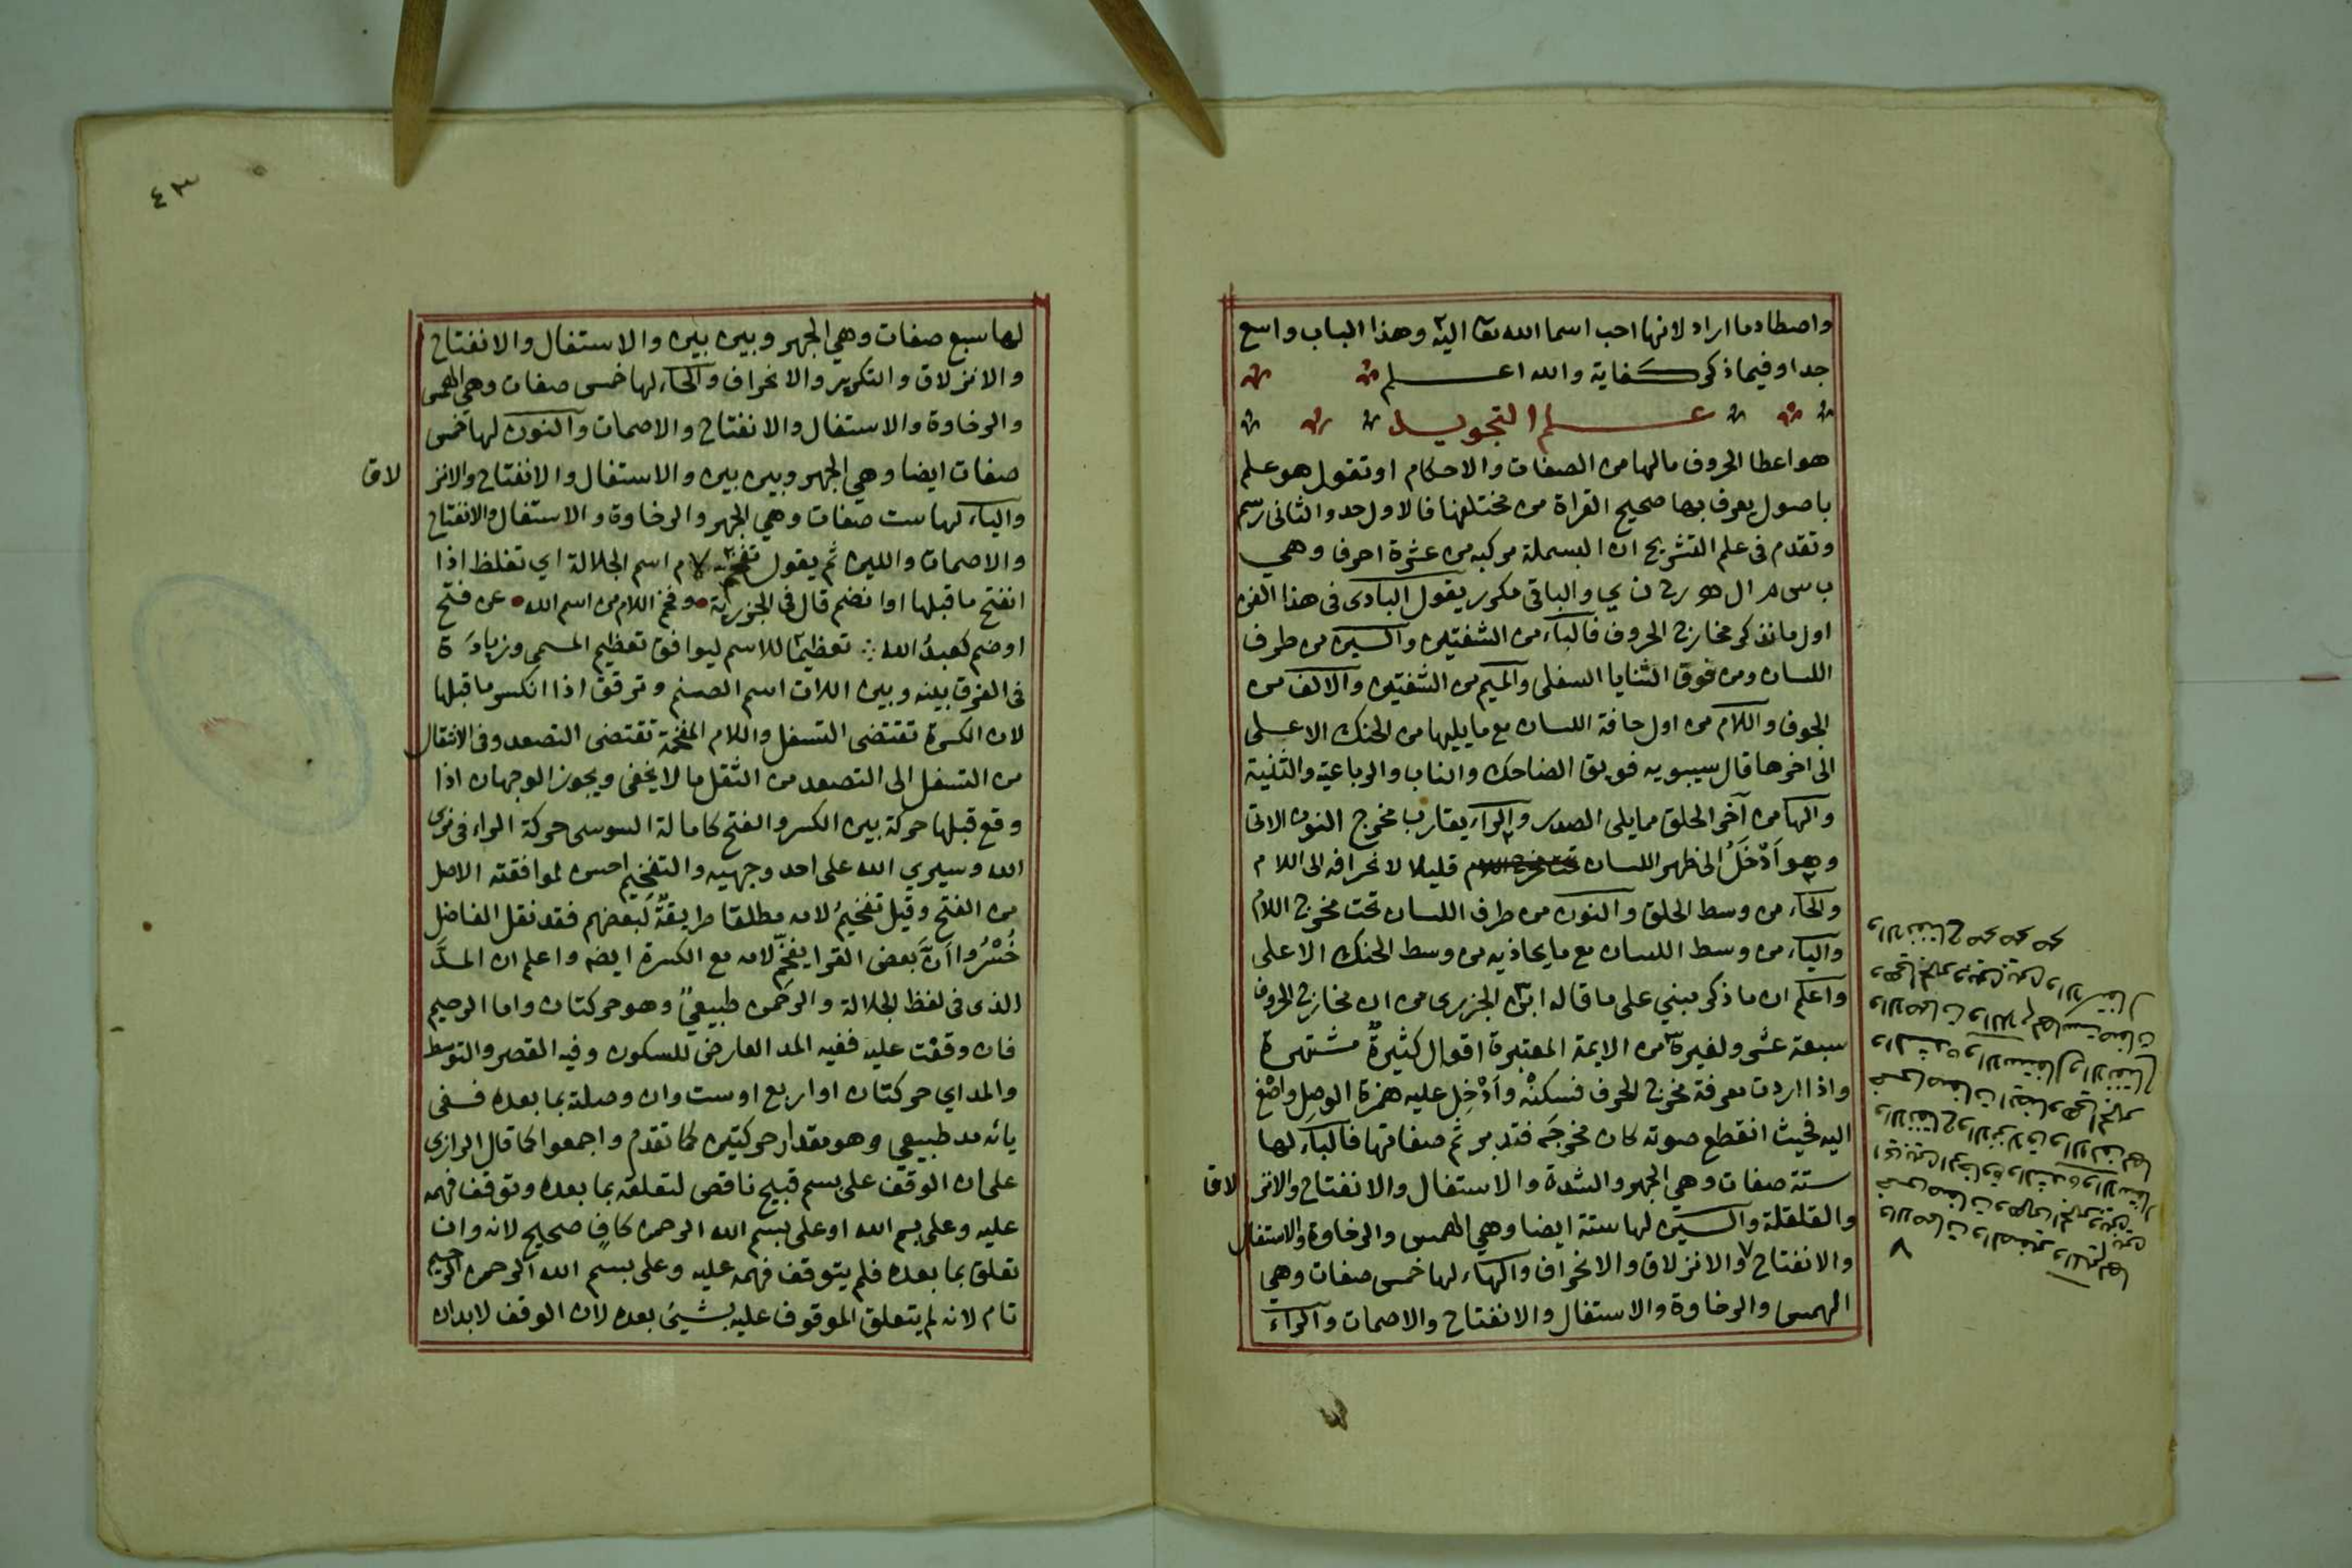 واصطاد ما اراد لانها احب اسما الله تعا اليه وهذا الباب واسع
جدا وفيما ذكر كفاية والله اعلم
علم التجويد
هو اعطا الحروف مالها من الصفات والاحكام او تقول هو علم
باصول يعرف بها صحيح القراة من مختلفها فالاول حد والثانى رسم
وتقدم فى علم التشريح ان البسملة مركبه من عشرة احرف وهي
ب س م ا ل ه ر ح ن ي والباقى مكرر يقول البادى فى هذا الفن
اول ما نذكر مخارج الحروف فالباء من الشفتين والسين من طرف
اللسان ومن فوق الثنايا السفلى والميم من الشفتين والالف من
الجوف واللام من اول حافة اللسان مع ما يليها من الحنك الاعلى
الى اخرها قال سيبويه فويق الضاحك والناب والرباعية والثنية
والها من آخر الحلق مما يلى الصدر والراء يقارب مخرج النون الاتى
وهو اَدْخَلُ الى ظهر اللسان قليلا لانحرافه الى اللام
والحاء من وسط الحلق والنون من طرف اللسان تحت مخرج اللام
والياء من وسط اللسان مع ما يحاذيه من وسط الحنك الاعلى
واعلم ان ما ذكر مبني على ما قاله ابن الجزرى من ان مخارج الحروف
سبعة عشر ولغيره من الايمة المعتبرة اقوال كثيرةٌ مشتهرة
واذا اردت معرفة مخرج الحرف فسكنْه وأَدْخِل عليه همزة الوصل واصْغ
اليه فحيث انقطع صوته كان مخرجَه فتدبر ثم صفاتها فالباء لها
ستة صفات وهي الجهر والشدة والاستفال والانفتاح والانز لاق
والقلقلة والسين لها ستة ايضا وهي الهمس والرخاوة والاستفال
والانفتاح ٧ والانزلاق والانحراف والهاء لها خمس صفات وهي
الهمس والرخاوة والاستفال والانفتاح والاصمات والراء
والاصمات والصفير والميم لها
خمس صفات وهي الجهر وبين بين
٧
٤٣
لها سبع صفات وهي الجهر وبين بين والاستفال والانفتاح
والانزلاق والتكرير والانحراف والحاء لها خمس صفات وهي الهمس
والرخاوة والاستفال والانفتاح والاصمات والنون لها خمس
صفات ايضا وهي الجهر وبين بين والاستفال والانفتاح والانز لاق
والياء لها ست صفات وهي الجهر والرخاوة والاستفال والانفتاح
والاصمات واللين ثم يقول تفخم لام اسم الجلالة اي تغلظ اذا
انفتح ما قبلها او انضم قال فى الجزرية وفخم اللام من اسم الله عن فتح
او ضم كعبدُ الله تعظيمًا للاسم ليوافق تعظيم المسمى وزيادَة
فى الفرق بينه وبين اللات اسم الصنم وترقق اذا انكسر ما قبلها
لان الكسرة تقتضى التسفل واللام المفخمة تقتضى التصعد وفى الانتقال
من التسفل الى التصعد من الثقل ما لا يخفى ويجوز الوجهان اذا
وقع قبلها حركة بين الكسر والفتح كامالة السوسى حركة الراء فى نرى
الله وسيري الله على احد وجهيه والتفخيم احسن لموافقته الاصل
من الفتح وقيل تفخيمُ لامه مطلقا طريقةٌ لبعضهم فقد نقل الفاضل
خُسْرُوا اَنَّ بعض القرا يفخّم لامه مع الكسرة ايضه واعلم ان المدَّ
الذى فى لفظ الجلالة والرحمن طبيعيٌ وهو حركتان واما الرحيم
فان وقفت عليه ففيه المد العارض للسكون وفيه القصر والتوسط
والمد اي حركتان او اربع او ست وان وصلته بما بعده ففى
يائه مد طبيعي وهو مقدار حركتين كما تقدم واجمعوا كما قال الرازى
على ان الوقف على بسم قبيح ناقص لتعلقه بما بعده وتوقف فهمه
عليه وعلى بسم الله او على بسم الله الرحمن كافٍ صحيح لانه وان
تعلق بما بعده فلم يتوقف فهمه عليه وعلى بسم الله الرحمن الرحيم
تام لانه لم يتعلق الموقوف عليه بشيئ بعده لان الوقف لا بد ان